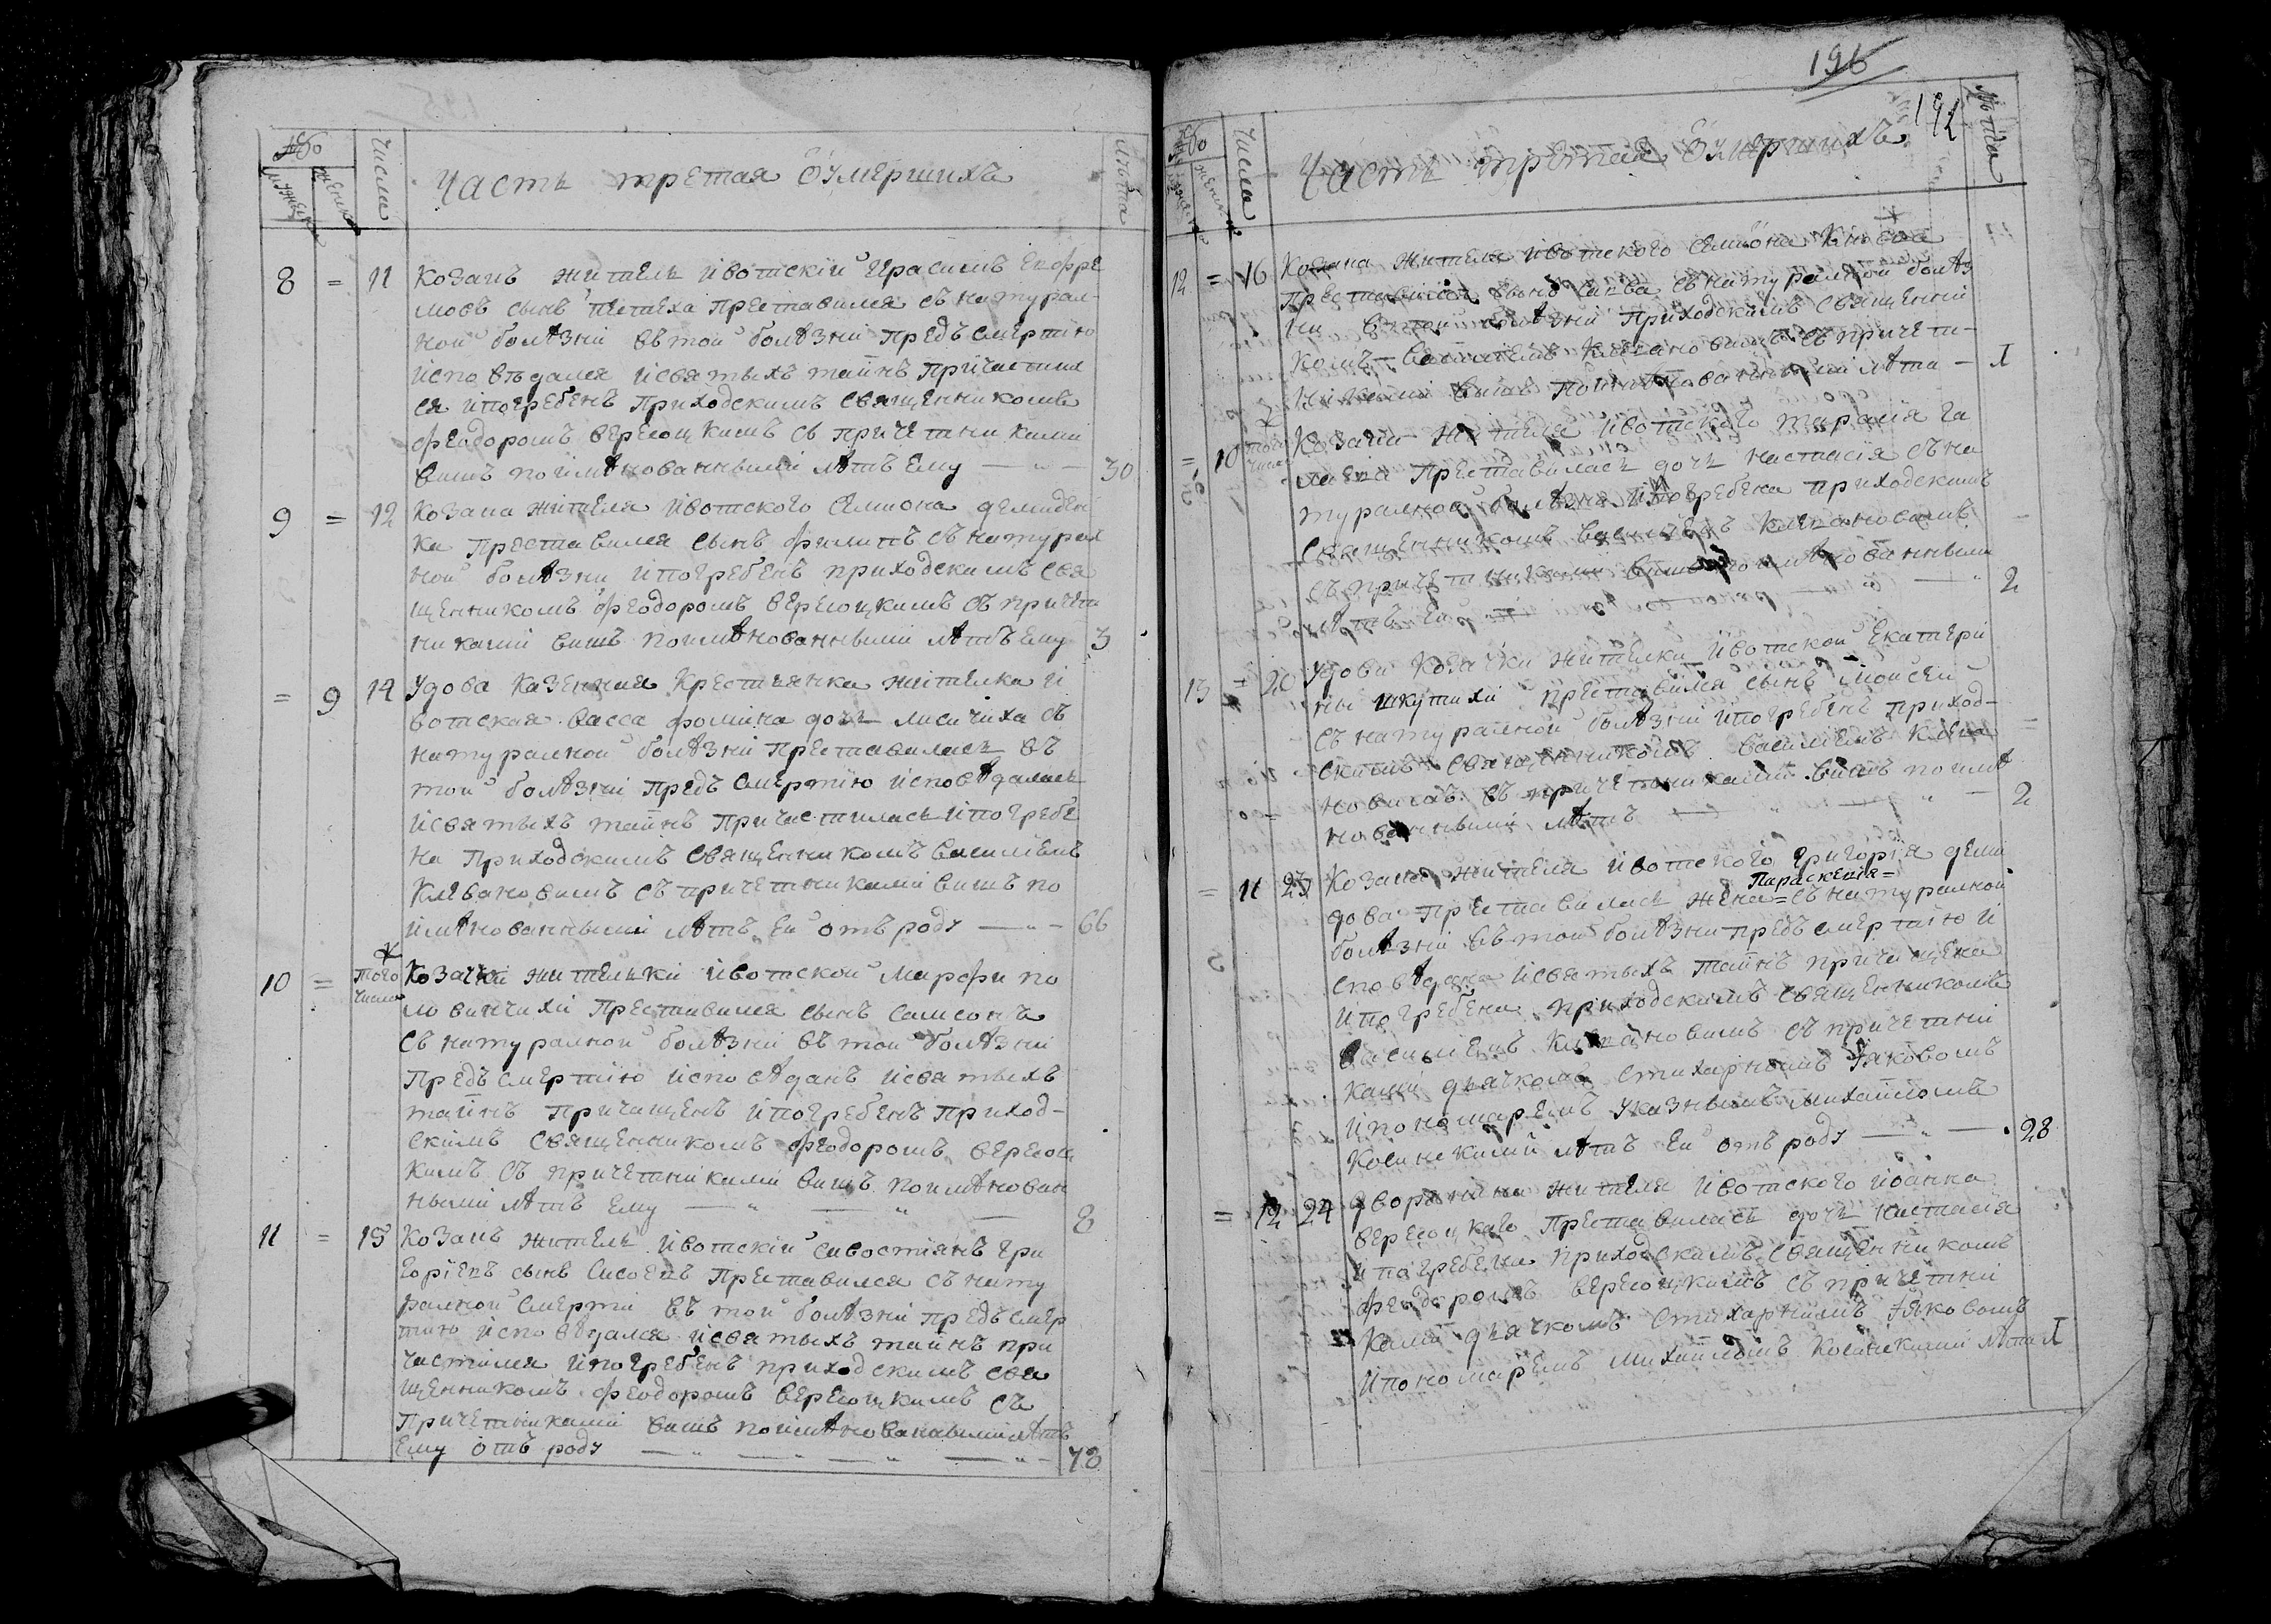 №о
мужеска
женска
Числа
Часть третая Оумершихъ
лѣта
8 = 11 Козакъ житель Ивотскій Герасимъ Евфре
мовъ сынъ Петеха преставился съ натурал-
ной болѣзни въ той болѣзни предъ смертію
исповѣдался исвятыхъ таинъ причастил
ся ипогребенъ приходскимъ священникомъ
Феодоромъ Верещкимъ съ причетниками
вишъ поимѣнованными лѣтъ ему — 30
9 = 12 Козака жителя Ивотского Симиона Демиден
ка преставился сынъ Филипъ съ натурал
ной болѣзни ипогребенъ приходскимъ свя
щенникомъ Феодоромъ Верещкимъ съ причет
никами вишъ поимѣнованными лѣтъ ему 3
= 9 14 Удова казенная крестьянка жителка И
вотская Васса Фомина дочь Лисичиха съ
натуралной болѣзни преставилась въ
той болѣзни предъ смертію исповѣдалась
исвятыхъ таинъ причастилась ипогребе
на приходскимъ священникомъ Василіемъ
Клевановимъ съ причетниками вишъ по
имѣнованными лѣтъ ей отъ роду — 66
10 = того числа Козачки жителки Ивотской Марфи По
ловинчихи преставился сынъ Самсонъ
съ натуралной болѣзни въ той болѣзни
предъ смертію исповѣданъ исвятыхъ
таинъ причащенъ ипогребенъ приход-
скимъ священникомъ Феодоромъ Верещ
кимъ съ причетниками вишъ поимѣнован
ными лѣтъ ему — 8
11 = 15 Козакъ житель Ивотскій Севостіянъ Гри
горіевъ сынъ Сисоевъ преставился съ нату
ралной смерти въ той болѣзни предъ смер
тію исповѣдался исвятыхъ таинъ при
частился ипогребенъ приходскимъ свя
щенникомъ Феодоромъ Верещкимъ съ
причетниками вишъ поимѣнованными лѣтъ
ему отъ роду — 78
196
192
№о
Числа
Часть третая Оумершихъ
лѣта
12 = 16 Козака жителя Ивотского Симиона
преставился сынъ Савва съ натуралной болѣз
ни въ той болѣзни приходскимъ священни
комъ Василіемъ Клевановимъ съ причет-
никами вишъ поимѣнованными лѣта — 1
= 10 того числа Козака жителя Ивотского Тарасія Га
преставилась дочь Настасія съ на
туралной болѣзни ипогребена приходскимъ
священникомъ Василіемъ Клевановимъ
съ причетниками вишъ поимѣнованными
лѣтъ ей — 2
13 = 20 Удови козачки жителки Ивотской Екатери
ни Шкутихи преставился сынъ Моисей
съ натуралной болѣзни ипогребенъ приход-
скимъ священникомъ Василіемъ Клева
новимъ съ причетниками вишъ поимѣ
нованными лѣтъ — 2
= 11 23 Козака жителя Ивотского Григорія Деми
дова преставилась жена = Параскевія = съ натуралной
болѣзни въ той болѣзни предъ смертію и
сповѣдана исвятыхъ таинъ причащена
ипогребена приходскимъ священникомъ
Василіемъ Клевановимъ съ причетни
ками дячкомъ стихарнимъ Іяковомъ
ипономаремъ указнымъ Михаиломъ
Косинскими лѣтъ ей отъ роду — 28
= 12 24 Дворянина жителя Ивотского Иоанна
Верещкаго преставилась дочь Настасія
ипогребена приходскимъ священникомъ
Феодоромъ Верещкимъ съ причетни
ками дячкомъ стихарнимъ Іяковомъ
ипономаремъ Михаиломъ Косинскими лѣта 1